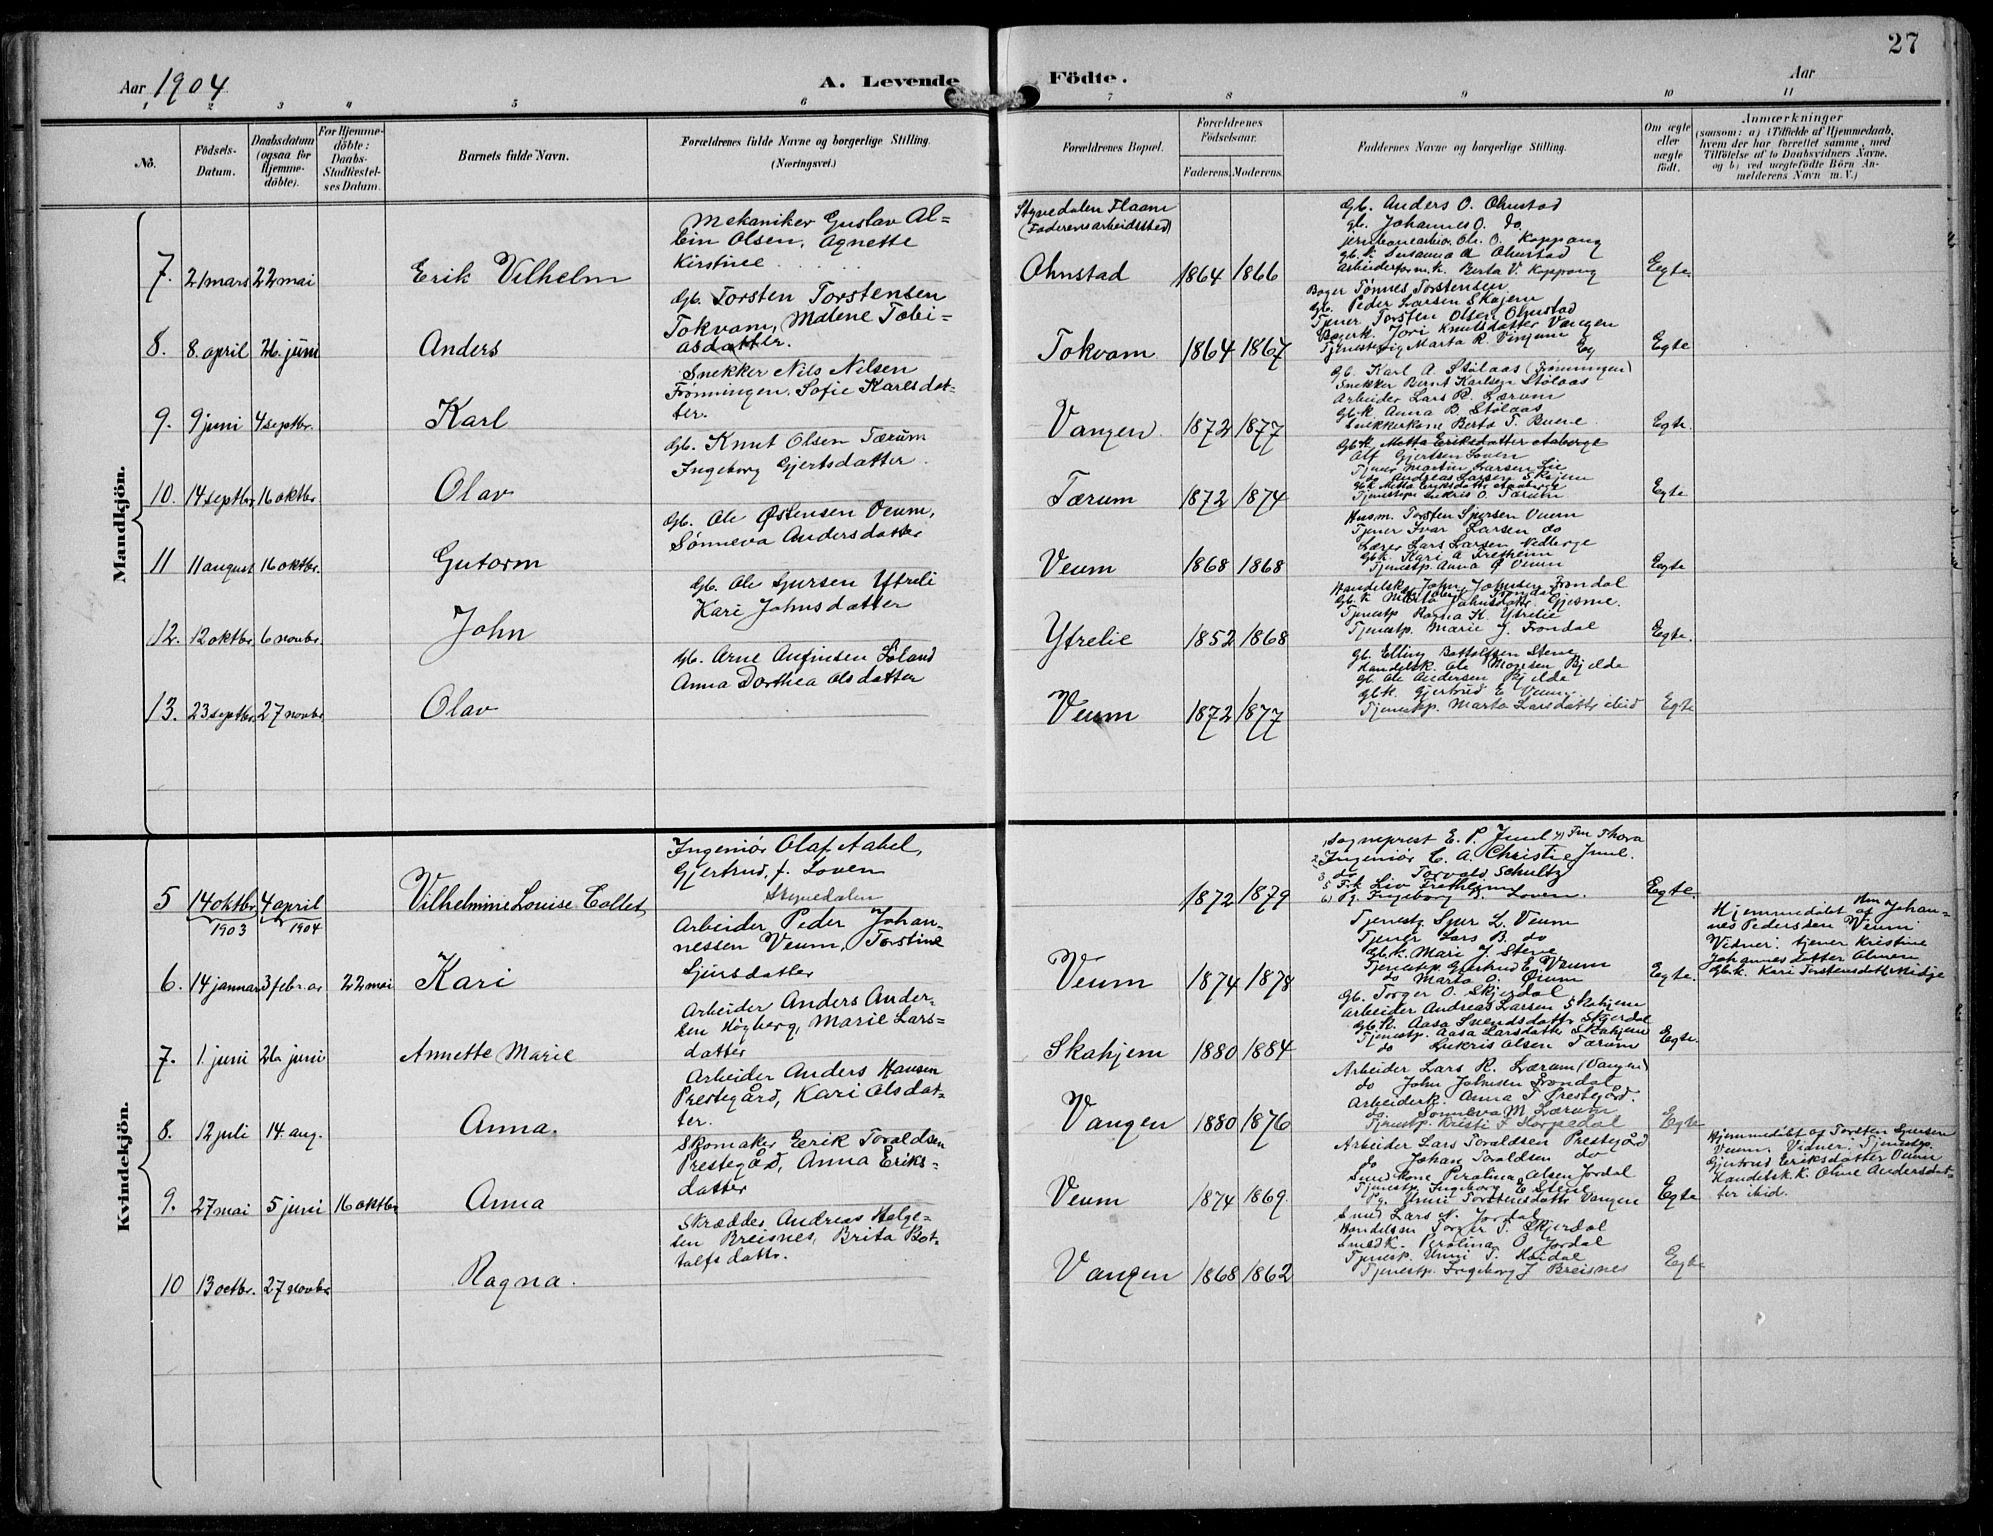 27
Aar 1904
A. Levende Födte.
Aar
1 2 3 4 5 6 7 8 9 10 11
No.
Födsels-Datum.
Daabsdatum (ogsaa for Hjemmedöbte).
For Hjemmedöbte: Daabs-Stadfæstelses Datum.
Barnets fulde Navn.
Forældrenes fulde Navne og borgerlige Stilling. (Næringsvei.)
Forældrenes Bopæl.
Forældrenes Födselsaar.
Faderens. Moderens.
Faddernes Navne og borgerlige Stilling.
Om ægte eller uægte födt.
Anmærkninger
(saasom: a) i Tilfælde af Hjemmedaab, hvem der har forrettet samme, med Tilföielse af to Daabsvidners Navne, og b) ved uægtefödte Börn Anmelderens Navn m. V.)
Mandkjön.
7. 21 mars 22 mai Erik Vilhelm
Mekaniker Gustav Al-
bin Olsen, Agnette
Kirstine
Styvedalen Flaam
(Faderens arbeidssted)
Ohnstad 1864 1866
Gb. Anders O. Ohnstad
Gb. Johannes O. do
jernbanearbio. Ole O. Koppang
Gb.k. Susanna A Ohnstad
Arbeiderform.k. Berta V. Koppang
Egte
8. 8. april 26. juni Anders
Gb. Torsten Torstensen
Tokvam, Malene Tobi-
asdatter.
Tokvam 1864 1867
Bager Tønnes Torstensen
Gb. Peder Larsen Skajem
Tjener Torsten Olsen Ohnstad
Bagerk. Jori Knutsdatter Vangen
Tjenestepig Marta R. Vinjum
Egte
9. 9 juni 4 septbr. Karl
Snekker Nils Nilsen
Frønningen, Sofie Karlsdat-
ter.
Vangen 1872 1877
Gb. Karl A. Stølaas (Frønningen)
Snekker Bernt Karlsen Stølaas
Arbeider Lars R. Lærum
Gbk. Anna B. Stølaas
Snekkerkone Berta T. Buene
Egte.
10. 14 septbr 16 oktbr. Olav
Gb. Knut Olsen Tærum
Ingeborg Gjertsdatter.
Tærum 1872 1874
Gbk. Metta Eriksdatter Aaberge
Alf Gjertsen Loven
Tjener Martin Larsen Lie
do Andreas Larsen Skajem
Gbk. Metta Eriksdatter Aaberge
Tjenestepi Lukris O. Tærum
Egte
11 11 august 16 oktbr. Gutorm
Gb. Ole Østensen Veum,
Sønneva Andersdatter
Veum 1868 1868
Husm. Torsten Sjursen Veum
Tjener Ivar Larsen do
Lærer Lars Larsen Nedberge
Gbk. Kari A Fretheim
Tjenestp. Anna O Veum
Egte
12. 12 oktbr. 6 novbr. John
Gb. Ole Sjursen Ytreli
Kari Johnsdatter
Ytrelie 1852 1868
Handelsk. John Johnsen Frondal
Gb.k. Marta Johnsdatter Gjesme.
Tjenestp Ragna K. Ytrelie
Tjenestp. Marie J. Frondal
Egte.
13. 23 septbr. 27 novbr Olav
Gb. Arne Anfinsen Loland
Anna Dorthea Olsdatter
Veum 1872 1877
Gb. Elling Bottolfsen Stene
Handelsk. Ole Monsen Bjelde
Gb. Ole Andersen Bjelde
Gbk. Gjertrud E. Veum
Tjenestp. Marta Larsdatter ibid
Egte
Kvindekjön.
5 14 oktbr. 1903 4 april 1904 Vilhelmine Louise Collet
Ingeniør Olaf Aabel,
Gjertrud, f. Loven
Styvedalen
1872 1879
1) Sogneprest E. P. Juul 4) Fru Thora Juul.
2) Ingeniør C. A. Christie
3 do Torvald Schultz
5 Frk Liv Fretheim
6) Pg. Ingeborg B. Loven.
Egte.
6. 14 januar 3 febr. 22 mai Kari
Arbeider Peder Johan-
nessen Veum, Torstine
Sjursdatter
Veum 1874 1878
Tjenestg Sjur L. Veum
Tjener Lars B. do
Gb.k. Mari J. Stene
Tjenestp. Gjertrud E. Veum
do Marta O. Veum
Egte.
Hjemmedøbt af Johan-
nes Pedersen Veum
Vidner: tjener Kristine
Johannesdatter
Gb.k. Kari Torstensdatter
7. 1. juni 26 juni Annette Marie
Arbeider Anders Ander-
sen Høgberg, Marie Lars-
datter
Skahjem 1880 1884
Gb. Torger O. Skjerdal
Arbeider Andreas Larsen Skahjem
Gb.k. Aasa Svendsdatter Skjerdal
Tjenestp. Aasa Larsdatter Skahjem
do Lukris Olsen Tærum
Egte.
8. 12 juli 14. aug. Anna.
Arbeider Anders Hansen
Prestegård, Kari Olsdat-
ter.
Vangen 1880 1876
Arbeider Lars R. Lærum (Vangen)
do John Johnsen Frondal
Arbeiderk. Anna T. Prestegård.
do. Sønneva M. Lærum
Tjenestp. Kristi F Horpedal
Egte
9. 27 mai 5 juni 16 oktbr Anna
Skomaker Eerik Toraldsen
Prestegård, Anna Eriks-
datter
Veum 1874 1869.
Arbeider Lars Toraldsen Prestegård
do Johan Toraldsen do
Smedkone Perolina Olsen Jordal
Tjenestp. Ingeborg E Stene
Pg. Unni Torstensdatter Vangen
Egte
Hjemmedøbt af Torsten Sjursen
Veum. Vidner: Tjenestp.
Gjertrud Eriksdatter Veum
Handelsk.k. Oline Andersdat-
ter ibid.
10 13 octbr. 27 novbr Ragna.
Skrædder Andreas Helge-
sen Breisnes, Brita Bot-
talfsdattr.
Vangen 1868 1862
Smed Lars N. Jordal
Handelsm Torger T. Skjerdal
Smedk. Perolina O. Jordal
Tjenestp. Unni T. Høidal
Tjenestp. Ingeborg J Breisnes
Egte